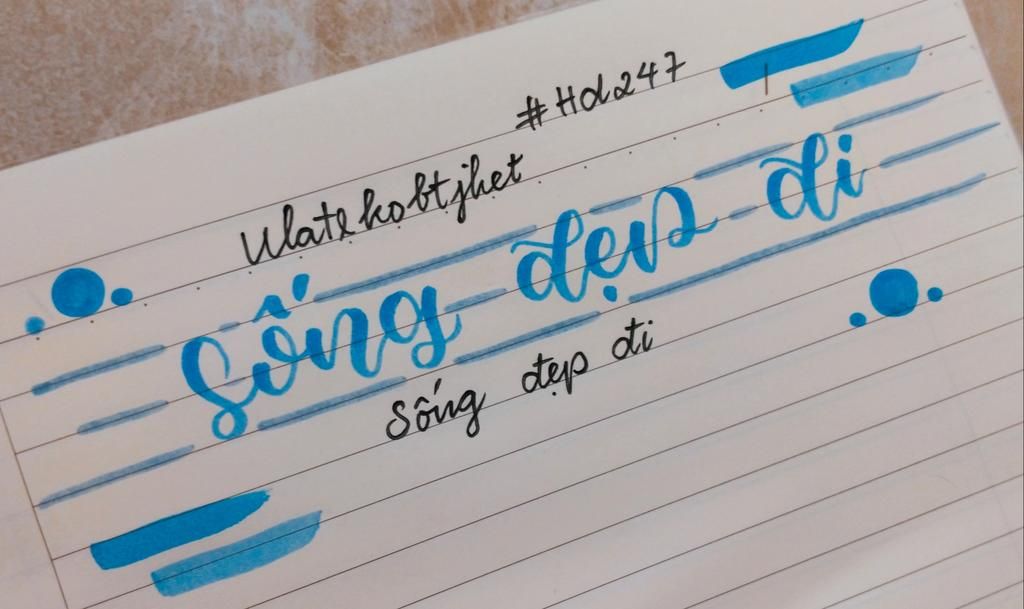 #Hd247
Sống đẹp đi
Sống đẹp đi